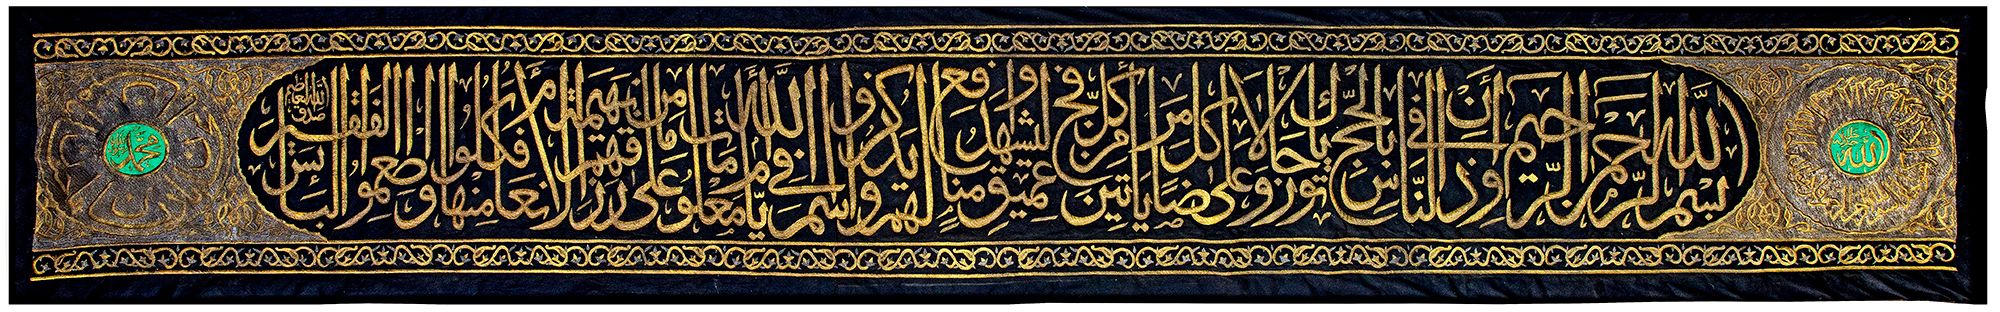 الله
بسم الله الرحمن الرحيم وأذن في الناس بالحج يأتوك رجالا وعلى كل ضامر يأتين من كل فج عميق ليشهدوا منافع لهم ويذكروا اسم الله في أيام معلومات على ما رزقهم من بهيمة الأنعام فكلوا منها وأطعموا البائس الفقير
صدق الله العظيم
محمد